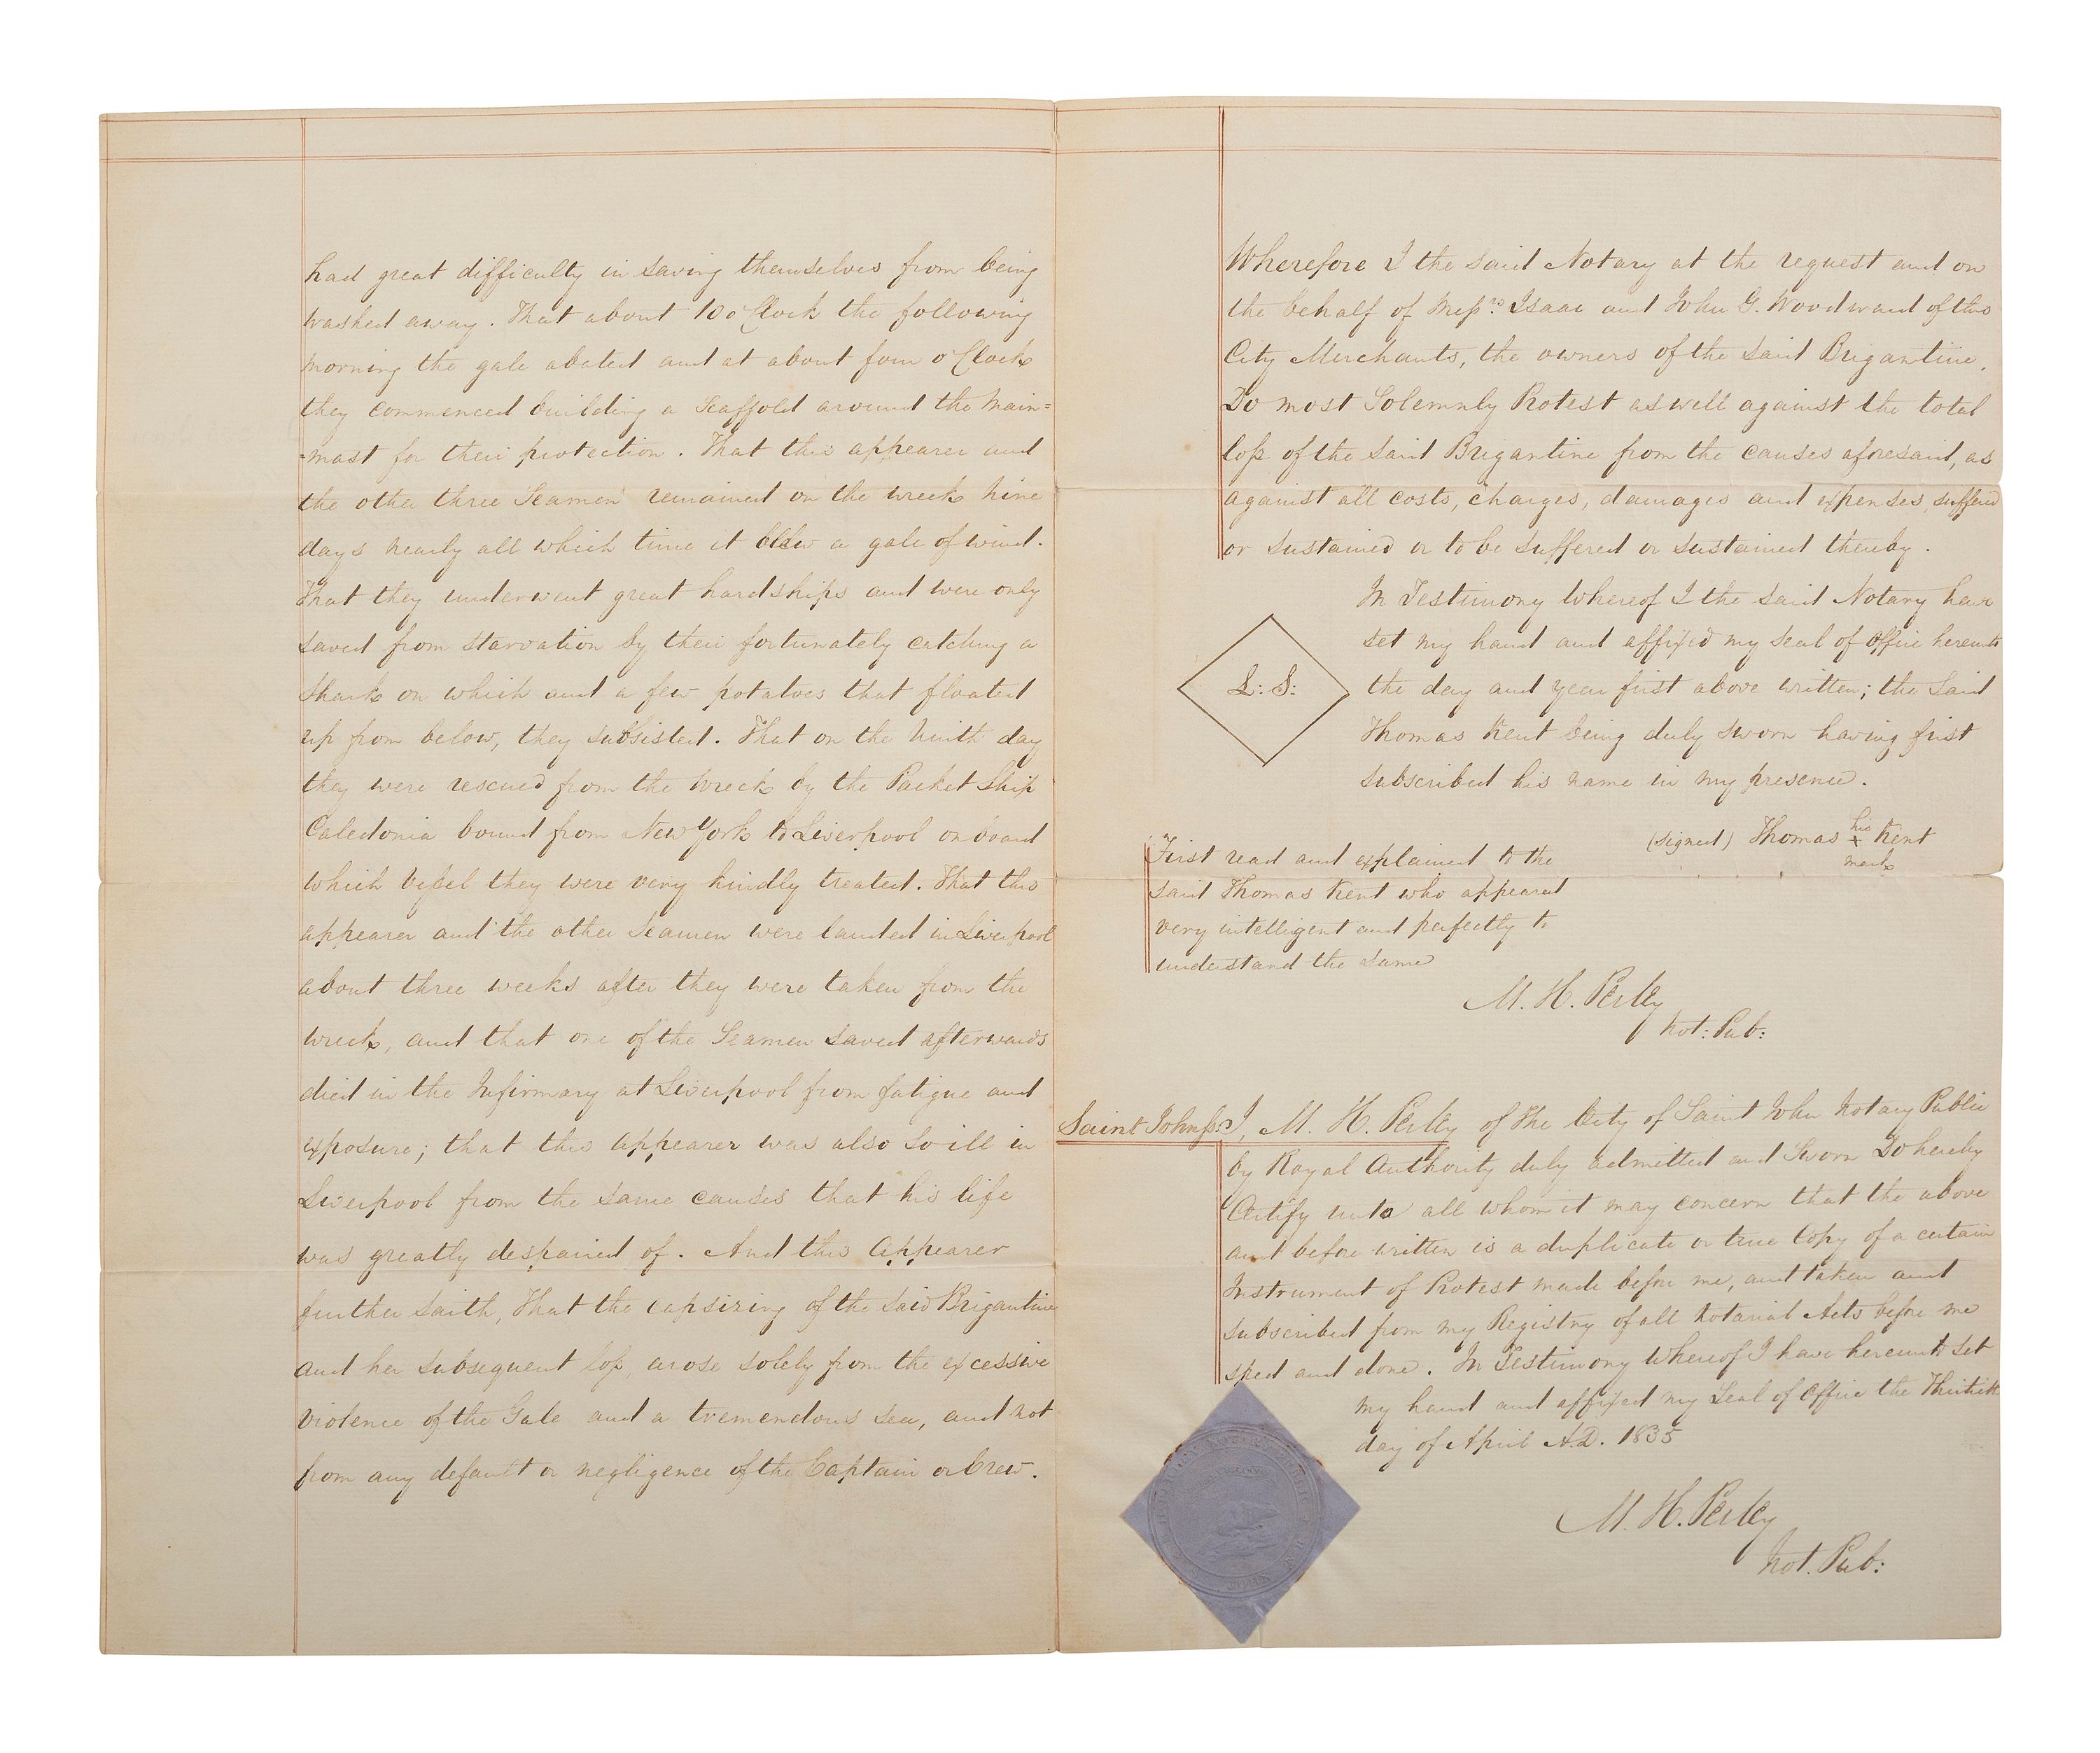 had great difficulty in saving themselves from being
washed away. That about 10 o'Clock the following
morning the gale abated and at about four o'Clock
they commenced building a Scaffold around the Main=
=mast for their protection. That this appearer and
the other three Seamen remained on the wreck nine
days nearly all which time it blew a gale of wind.
That they underwent great hardships and were only
saved from starvation by their fortunately catching a
Shark on which and a few potatoes that floated
up from below, they subsisted. That on the ninth day
they were rescued from the wreck by the Packet Ship
Caledonia bound from New York to Liverpool on board
which vessel they were very kindly treated. That this
appearer and the other Seamen were landed in Liverpool
about three weeks after they were taken from the
wreck, and that one of the Seamen saved afterwards
died in the Infirmary at Liverpool from fatigue and
exposure; that this appearer was also so ill in
Liverpool from the same causes that his life
was greatly despaired of. And this Appearer
further saith, That the capsizing of the said Brigantine
and her subsequent loss, arose solely from the excessive
violence of the Gale and a tremendous sea, and not
from any default or negligence of the Captain or Crew.
Wherefore I the said Notary at the request and on
the behalf of Messrs. Isaac and John G. Woodward of this
City Merchants, the owners of the said Brigantine,
Do most Solemnly Protest as well against the total
loss of the said Brigantine from the causes aforesaid, as
against all costs, charges, damages and expenses, suffered
or sustained or to be suffered or sustained thereby.
In Testimony Whereof I the said Notary have
set my hand and affixed my seal of office hereunto
L: S: the day and year first above written; the said
Thomas Kent being duly sworn having first
subscribed his name in my presence.
(signed) Thomas his + mark Kent
First read and explained to the
said Thomas Kent who appeared
very intelligent and perfectly to
understand the same
M. H. Perley
Not: Pub:
Saint John ss: I, M. H. Perley of the City of Saint John Notary Public
by Royal Authority duly admitted and Sworn Do hereby
Certify unto all whom it may concern that the above
and before written is a duplicate or true Copy of a certain
Instrument of Protest made before me, and taken and
subscribed from my Registry of all Notarial Acts before me
sped and done. In Testimony Whereof I have hereunto set
my hand and affixed my Seal of Office the Thirtieth
day of April A.D. 1835
M. H. Perley
Not. Pub: